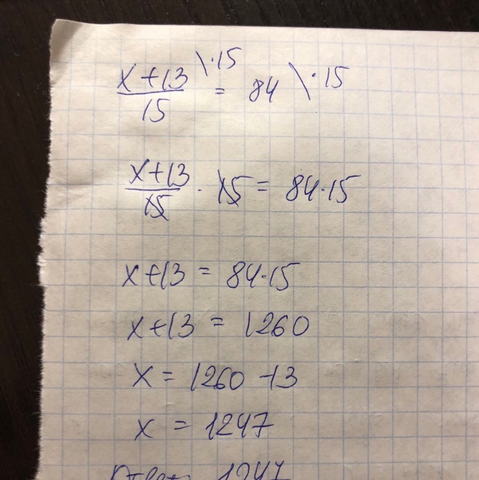 x+13 \·15 = 84 \·15
15
x+13 · 15 = 84·15
15
x+13 = 84·15
x+13 = 1260
x = 1260 -13
x = 1247
Ответ 1247